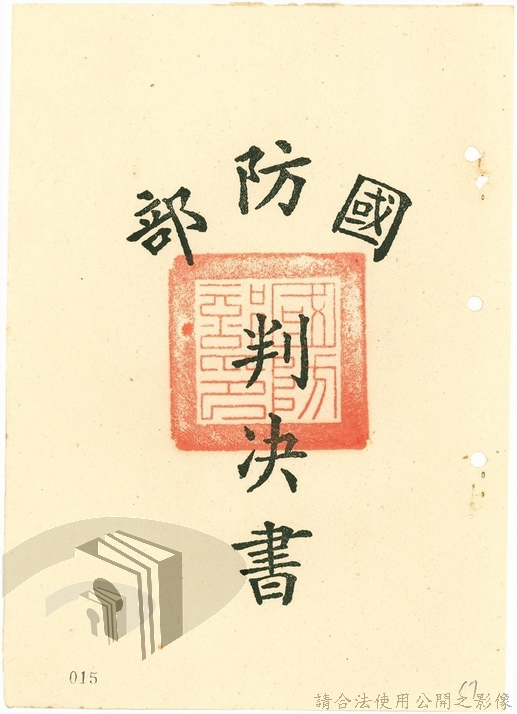 國防部
判決書
國防部印
015
67
請合法使用公開之影像